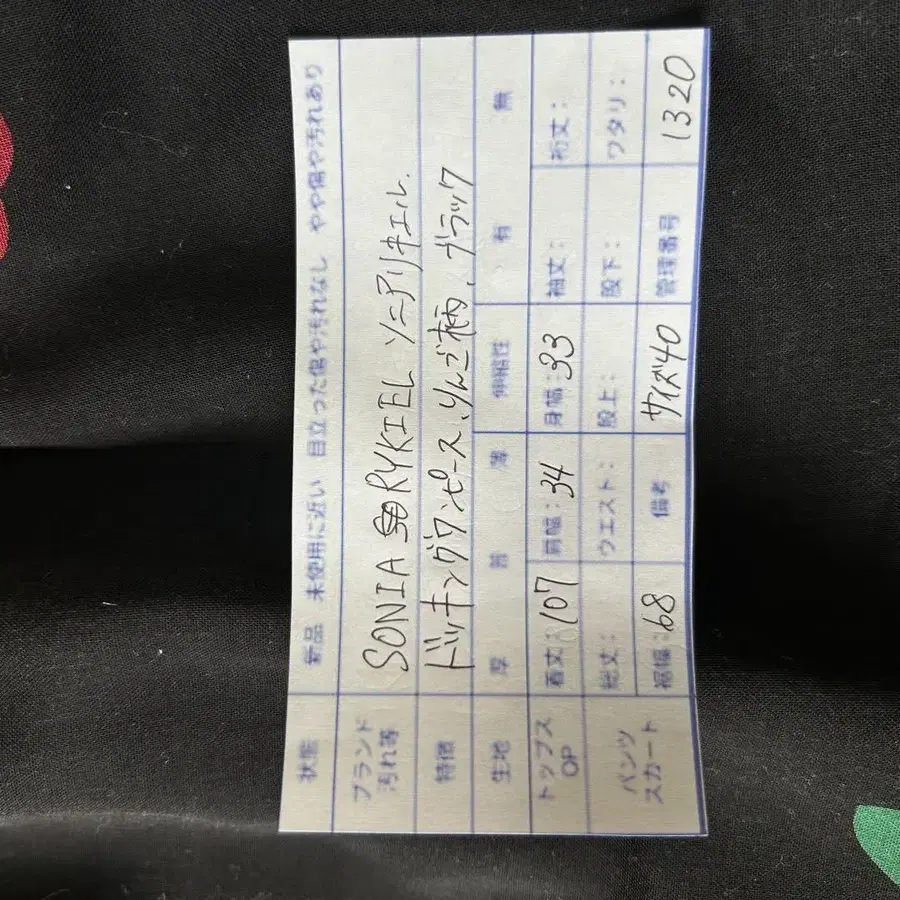 状態 新品 未使用に近い 目立った傷や汚れなし やや傷や汚れあり
ブランド 汚れ等 SONIA RYKIEL ソニアリキエル.
特徴 ドッキングワンピース、りんご柄、ブラック
生地 厚 普 薄 伸縮性 有 無
トップス OP 着丈:107 肩幅:34 身幅:33 袖丈: 裄丈:
パンツ スカート 総丈: ウエスト: 股上: 股下: ワタリ:
裾幅:68 備考 サイズ40 管理番号 1320